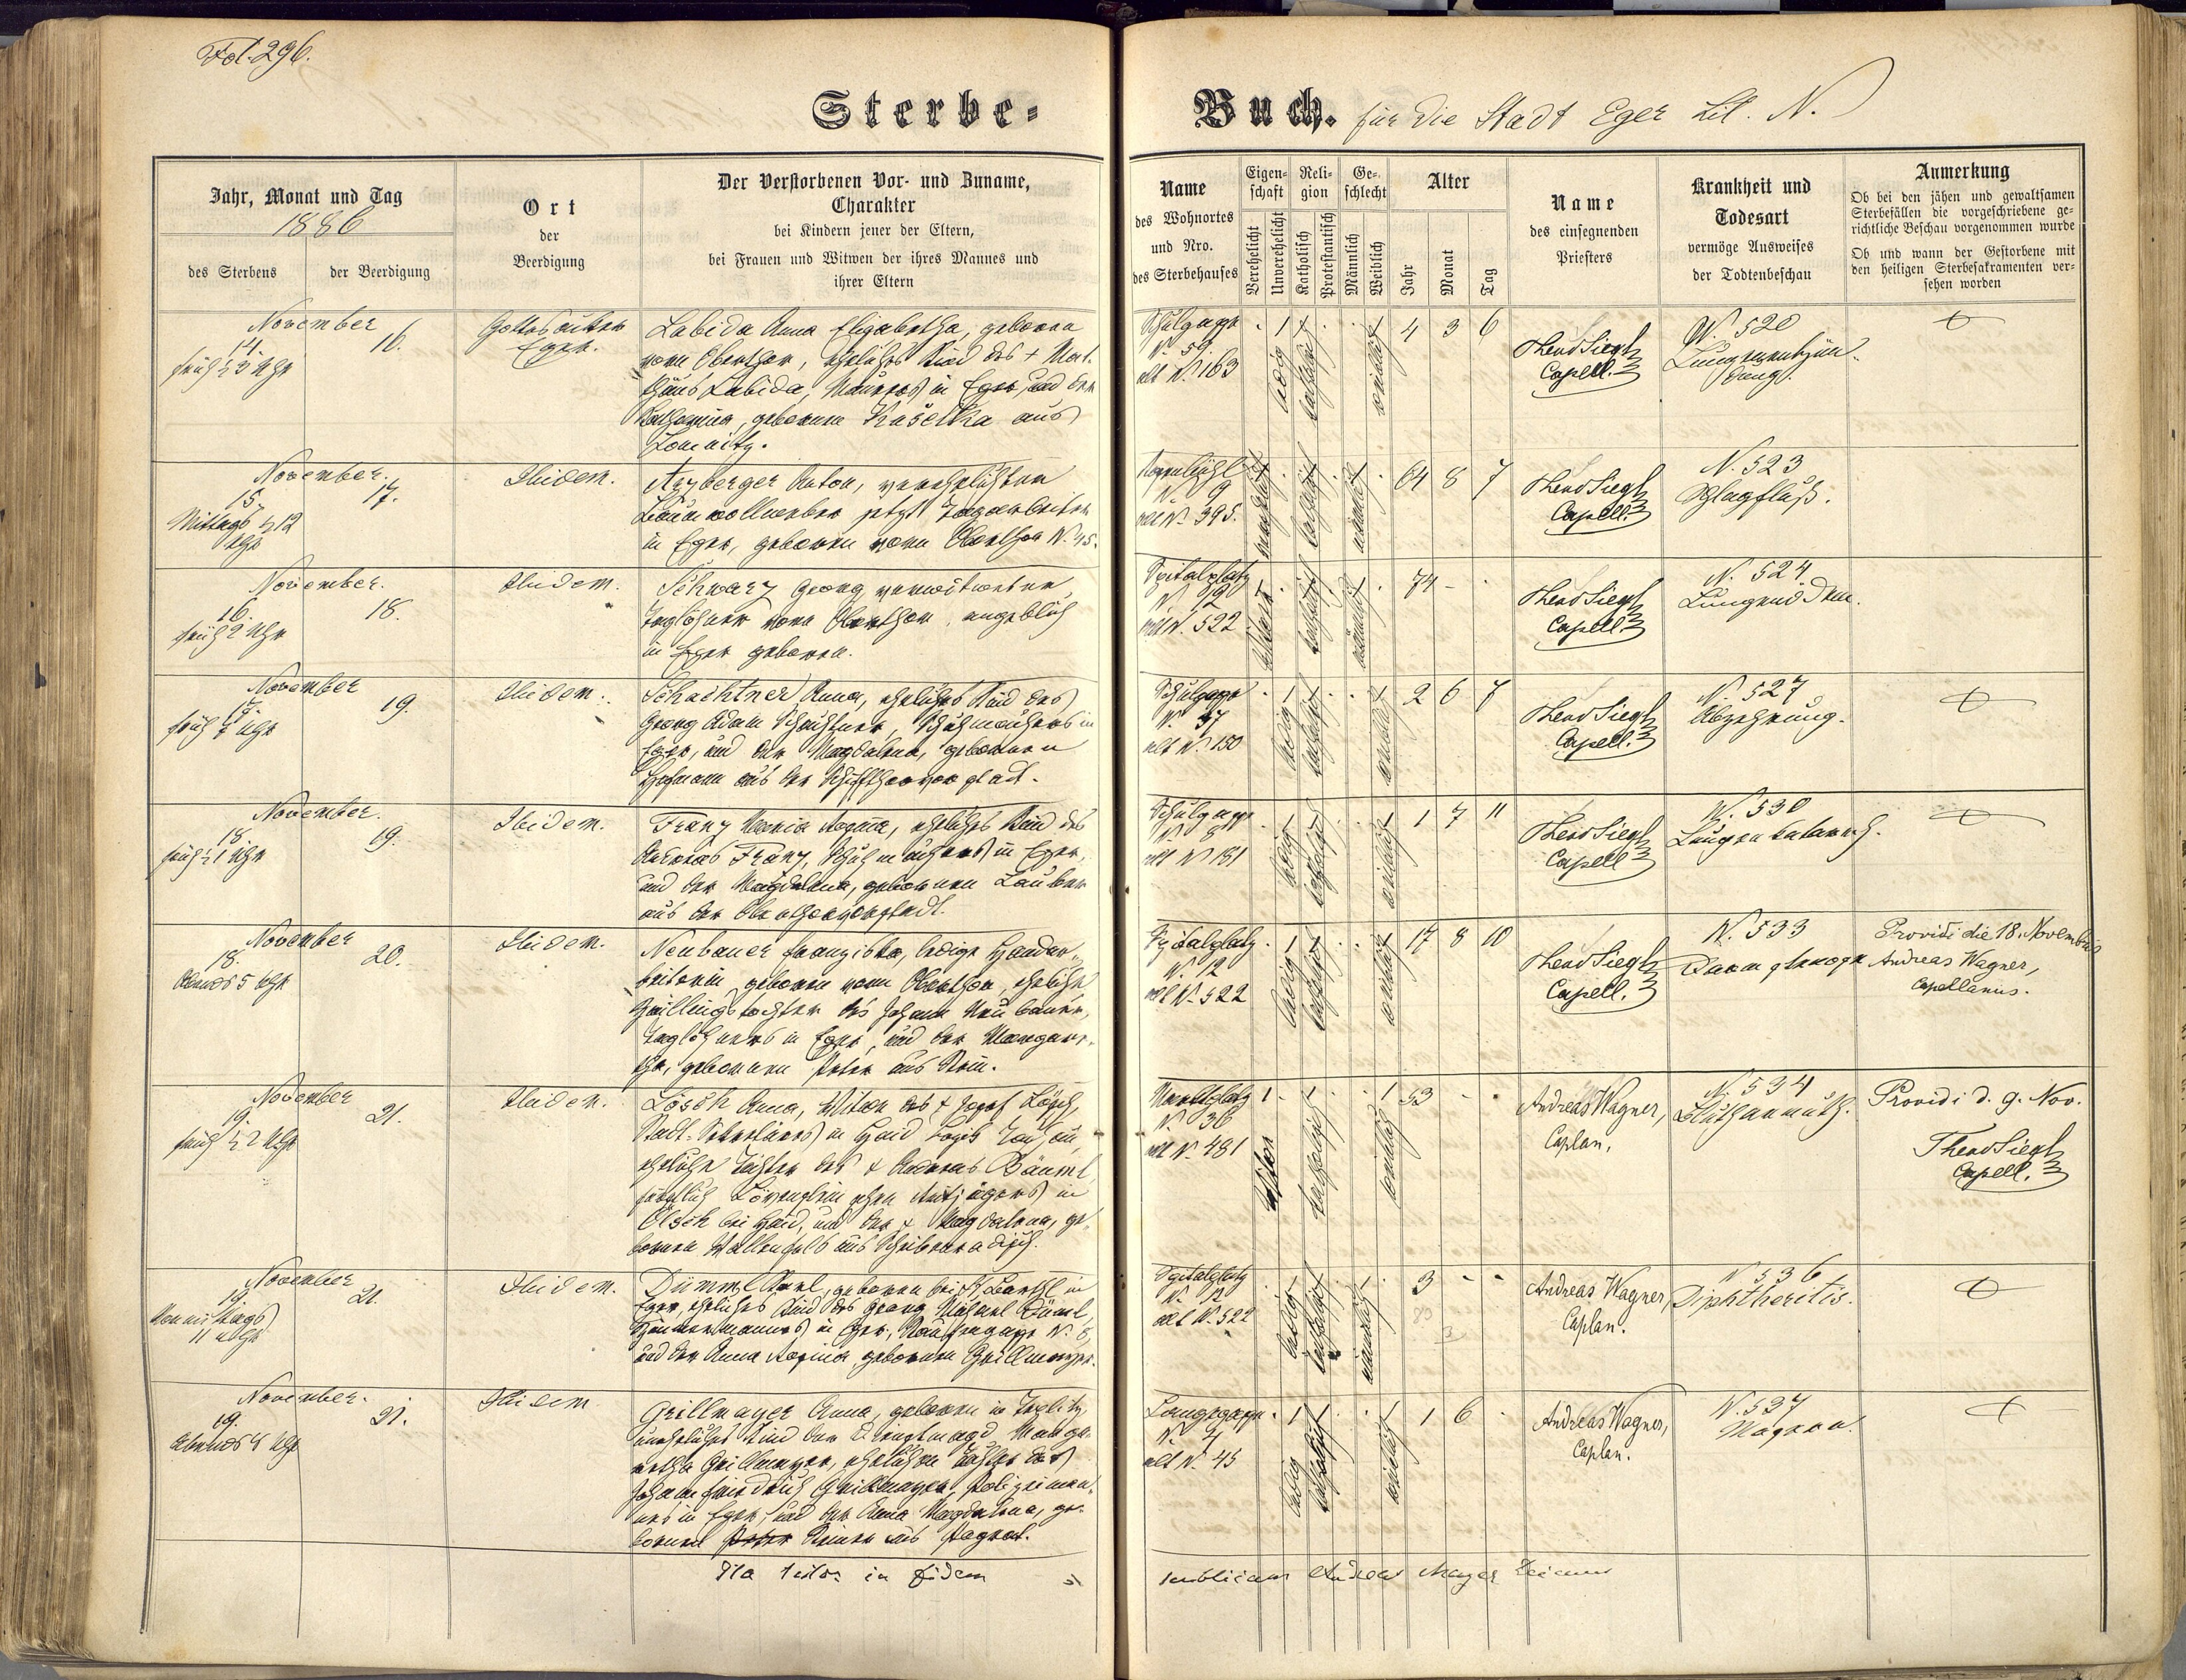 Fol. 296.
Sterbe-
Buch. für die Stadt Eger Lit. N.
Jahr, Monat und Tag
1886
des Sterbens
der Beerdigung
Ort
der
Beerdigung
Der Verstorbenen Vor- und Zuname,
Charakter
bei Kindern jener der Eltern,
bei Frauen und Witwen der ihres Mannes und
ihrer Eltern
Name
des Wohnortes
und Nro.
des Sterbehauses
Eigen-
schaft
Verehelicht
Unverehelicht
Reli-
gion
Katholisch
Protestantisch
Ge-
schlecht
Männlich
Weiblich
Alter
Jahr
Monat
Tag
Name
des einsegnenden
Priesters
Krankheit und
Todesart
vermöge Ausweises
der Todtenbeschau
Anmerkung
Ob bei den jähen und gewaltsamen
Sterbefällen die vorgeschriebene ge-
richtliche Beschau vorgenommen wurde
Ob und wann der Gestorbene mit
den heiligen Sterbesakramenten ver-
sehen worden
November
14.
früh ½3 Uhr
16.
Gottesacker
Eger.
Labida Anna Elisabetha, geboren
vorm Oberthor, eheliches Kind des + Mat-
thäus Labida, Maurers in Eger, und der
Katharina, geborenen Kušetka aus
Lomnitz.
Schulgasse
N. 59
alt N. 163
1 1 1
ledig
katholisch
weiblich
4 3 6
Theod Siegl
Capell.
N. 520
Lungenentzün-
dung.
November.
15.
Mittags ½12
Uhr
17.
Ibidem.
Arzberger Anton, verehelichter
Baumwollweber jetzt Tagarbeiter
in Eger, geboren vorm Oberthor N. 45.
Rosenbühl
N. 9
alt N. 395.
1 1 1
verehelicht
katholisch
männlich
64 8 7
Theod Siegl
Capell.
N. 523
Schlagfluß.
November.
16.
früh 2 Uhr
18.
Ibidem.
Schwarz Georg verwitweter
Taglöhner vorm Oberthor, angeblich
in Eger geboren.
Spitalplatz
alt N. 522
Witwer
katholisch
männlich
74 -
Theod Siegl
Capell.
N. 524
Lungenödem.
November
17.
früh 7 Uhr
19.
Ibidem.
Schachtner Anna, eheliches Kind des
Georg Adam Schachtner, Schuhmachers in
Eger, und der Magdalena, geborenen
Hofmann aus der Schiffthorvorstadt.
Schulgasse
N. 37
alt N. 150
ledig
katholisch
weiblich
2 6 7
Theod Siegl
Capell.
N. 527
Abzehrung.
November.
18.
früh ½1 Uhr
19.
Ibidem.
Franz Maria Rosina, eheliches Kind des
Andreas Franz, Schuhmachers in Eger,
und der Magdalena, geborenen Lauber
aus der Oberthorvorstadt.
Schulgasse
N. 8
alt N 181
ledig
katholisch
weiblich
1 7 11
Theod Siegl
Capell
N. 530
Lungenkatarrh.
November
18.
Abends 5 Uhr
20.
Ibidem.
Neubauer Franziska, ledige Handar-
beiterin geboren vorm Oberthor, eheliche
Zwillingstochter des Johann Neubauer,
Taglöhners in Eger, und der Margare-
tha, geborenen Peter aus
Spitalplatz
N. 12
alt N. 522
ledig
katholisch
weiblich
17 8 10
Theod Siegl
Capell.
N. 533
Providi die 18. Novembris
Andreas Wagner,
Capellanus.
November
19.
früh ½2 Uhr
21.
Ibidem.
Lösch Anna, Witwe des + Josef Lösch,
Stadt-Sekretärs in Haid
eheliche Tochter des + Andreas Bäuml
fürstlich Löwenstein'schen Amtsjägers in
Ölsch bei Haid, und der + Magdalena, ge-
borenen Wallenfels aus
Marktplatz
N. 36
alt N. 481
1 1 1
Witwe
katholisch
weiblich
53 - -
Andreas Wagner,
Caplan.
N. 534
Blutharmuth.
Providi d. 9. Nov.
Theod Siegl
Capell.
November
19.
Vormittags
11 Uhr
21.
Ibidem.
Dümml Karl, geboren bei St. Barthl in
Eger, eheliches Kind des Georg Michael Dümml,
Zimmermannes in Eger,
und der Anna Rosina geborenen Grillmayer.
Spitalplatz
N. 12
alt N. 522
ledig
katholisch
männlich
3 - -
Andreas Wagner,
Caplan.
N 536
Diphtheritis.
November.
19.
Abends 4 Uhr
21.
Ibidem
Grillmayer Anna, geboren in
uneheliches Kind der Dienstmagd Marga-
retha Grillmayer, ehelichen Tochter des
Johann Friedrich Grillmayer, Polizeiman-
nes in Eger, und der Anna Magdalena, ge-
borenen
Langegasse
N. 4
alt N. 45
1 1 1
ledig
katholisch
weiblich
1 6
Andreas Wagner,
Caplan.
N. 537
Masern.
Ita testor in fidem
publicam Andreas Mayer